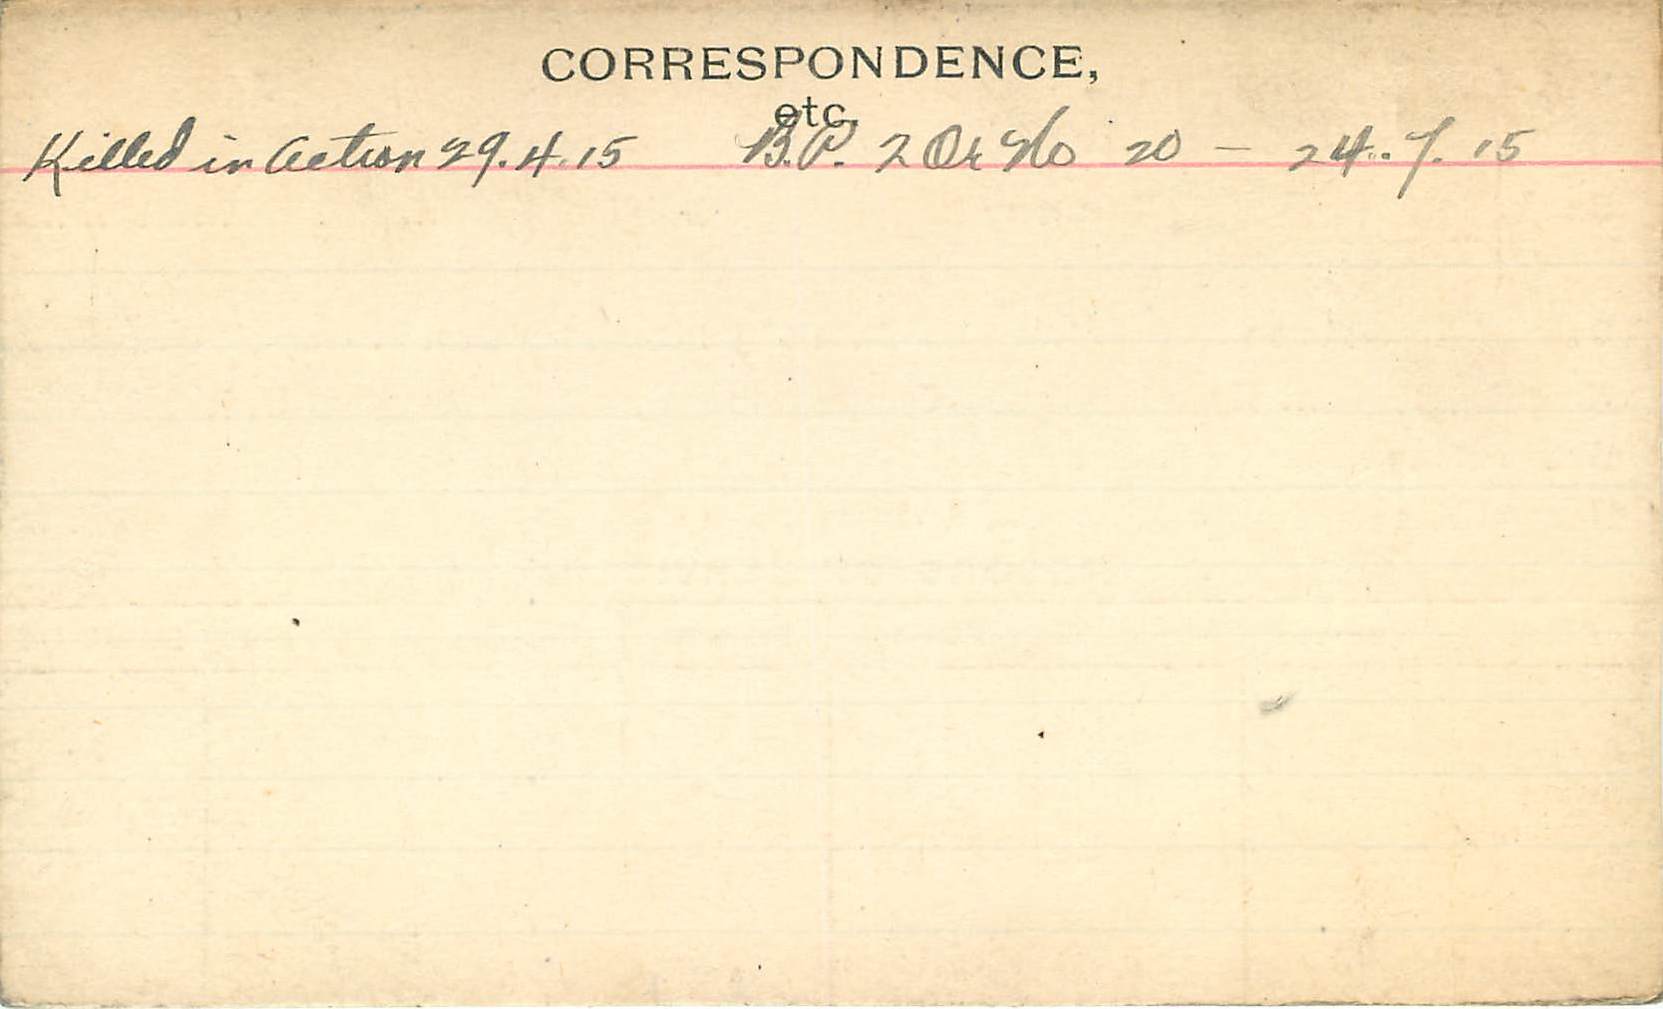 CORRESPONDENCE,
etc.
Killed in Action 29.4.15 B.P. 2 Or No 20 - 24.7.15